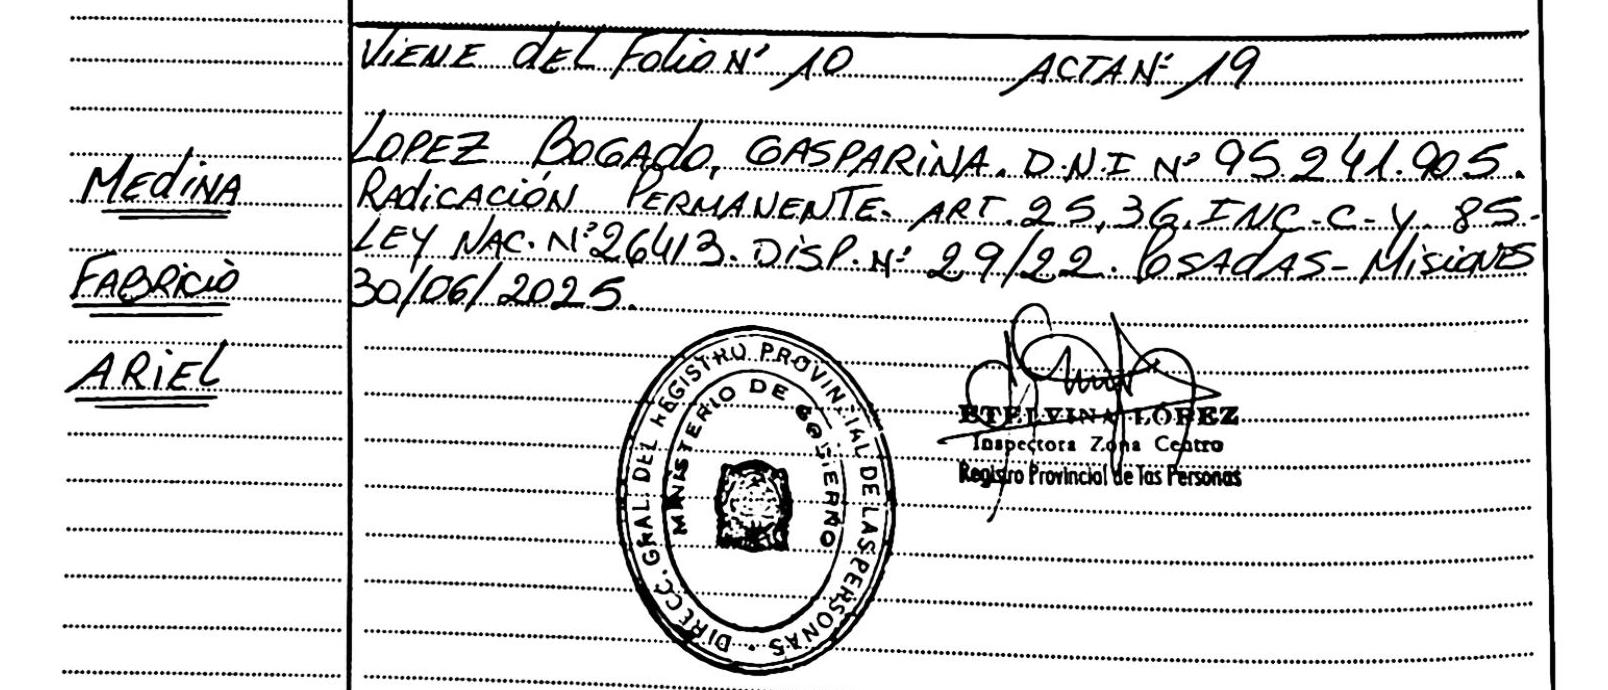 VIENE dEL Folio Nº 10 ACTA Nº 19
LOPEZ BOGAdo, GASPARINA. D.N.I Nº 95.241.905.
MEdiNA
RAdiCACIÓN PERMANENTE. ART. 25, 36, INC. C-Y. 85.-
LEY NAC. Nº 26413. DISP. Nº 29/22. POSADAS-MISIONES
FABRICIO
30/06/2025.
ARIEL
DIRECC. GRAL. DEL REGISTRO PROVINCIAL DE LAS PERSONAS
MINISTERIO DE GOBIERNO
ETELVINA LÓPEZ
Inspectora Zona Centro
Registro Provincial de las Personas